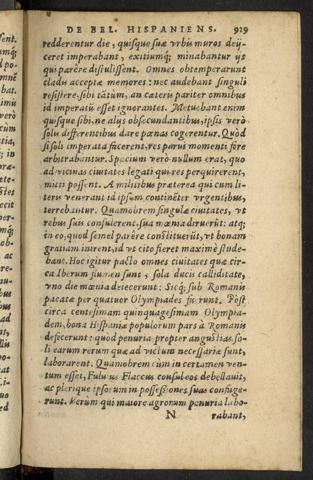 DE BEL. HISPANIENS. 929
redderentur die, quisque suæ vrbis muros deij-
ceret imperabant, exitiumq́; minabantur ijs
qui parêre distulissent. Omnes obtemperarunt
cladis acceptæ memores: nec audebant singuli
resistere, sibi tātùm, an cæteris pariter omnibus
id imperatū esset ignorantes. Metuebant enim
quisque sibi, ne alijs obsecundantibus, ipsis verò
solis differentibus dare pœnas cogerentur. Quòd
si soli imperata facerent, res parui momenti fore
arbitrabantur. Spacium verò nullum erat, quo
ad vicinas ciuitates legati qui res perquirerent,
mitti possent. A militibus præterea qui cum li-
teris venerant id ipsum continêter vrgentibus,
terrebantur. Quamobrem singulæ ciuitates, vt
rebus suis consulerent, sua mœnia diruerūt: atq́;
in eo, quod semel parére cōstituerūt, vt bonam
gratiam inirent, id vt citò fieret maximè stude-
bant. Hoc igitur pacto omnes ciuitates quæ cir-
ca Iberum flumen sunt, sola ducis calliditate,
vno die mœnia deiecerunt: Sicq́; sub Romanis
pacatæ per quatuor Olympiades fuerunt. Pòst
circa centesimam quinquagesimam Olympia-
dem, bona Hispaniæ populorum pars à Romanis
defecerunt: quòd penuria propter angustias so-
li earum rerum quæ ad victum necessariæ sunt,
laborarent. Quamobrem cùm in certamen ven-
tum esset, Fuluius Flaccus consul eos debellauit,
ac plerique ipsorum in possessiones suas confuge-
runt. Verum qui maiore agrorum penuria labo-
N rabant,